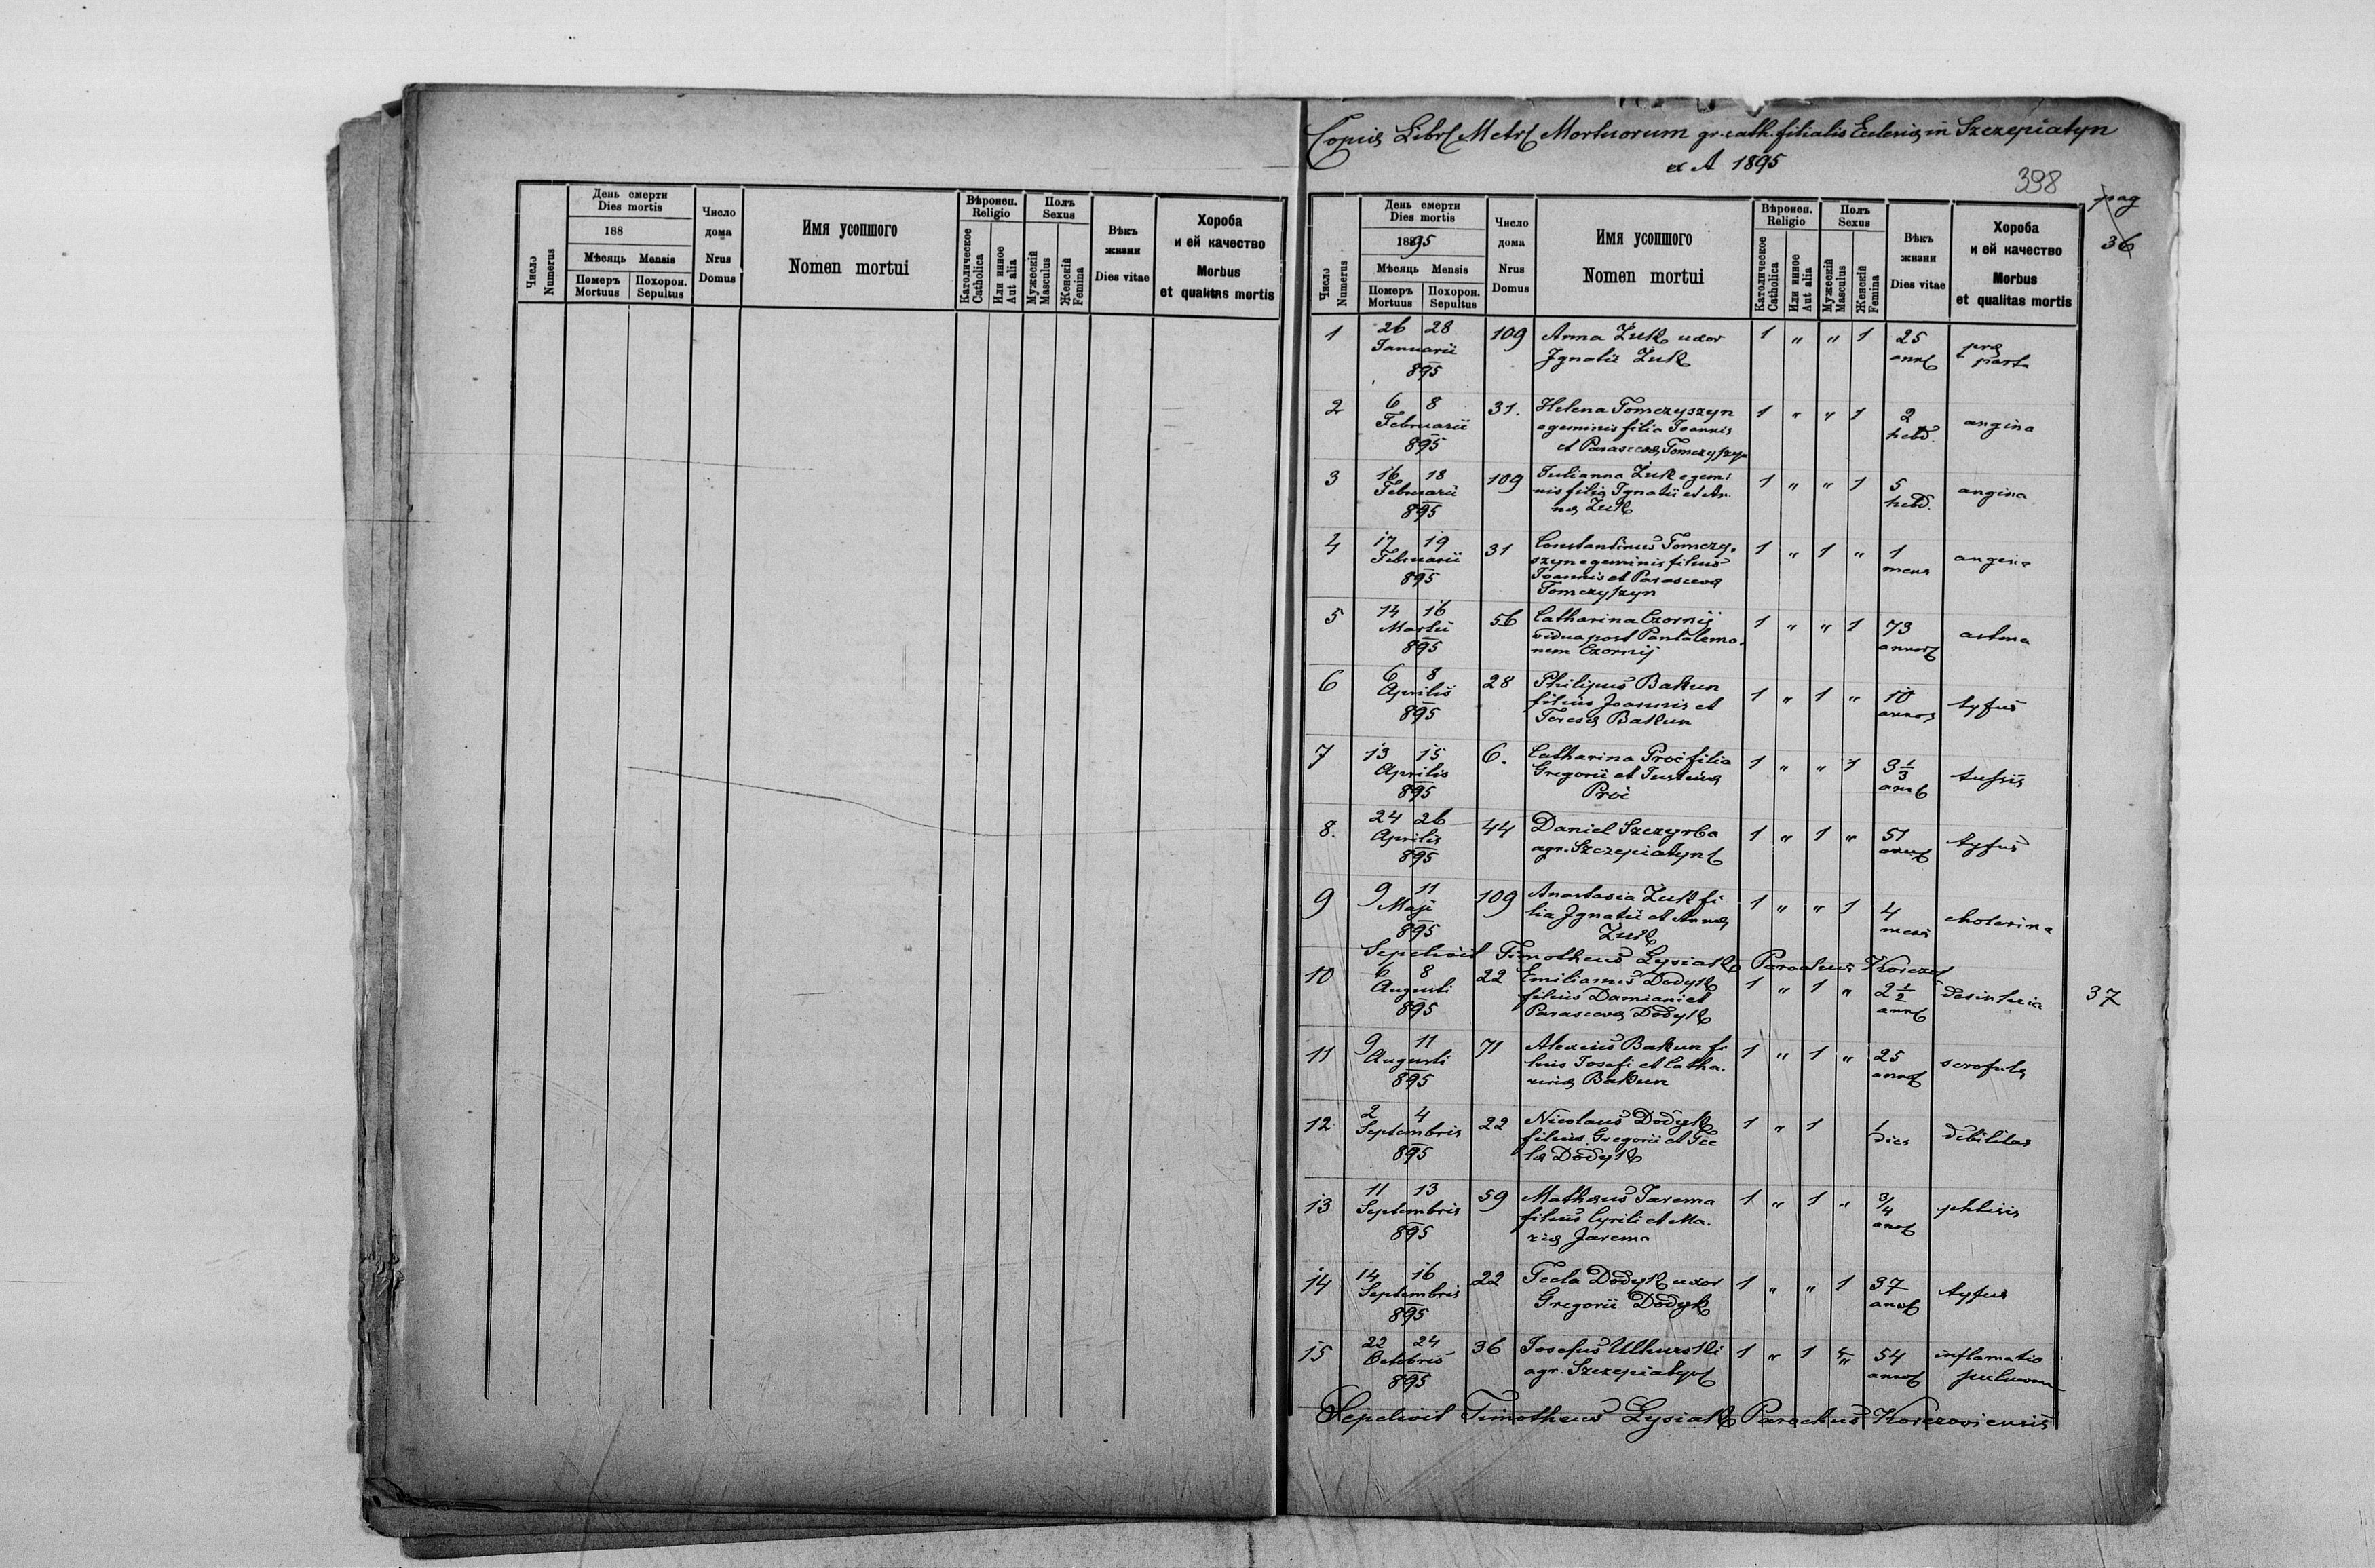 День смерти
Dies mortis
188
Мѣсяць Mensis
Померъ Mortuus
Похорон. Sepultus
Число Numerus
Число дома
Nrus Domus
Имя усопшого
Nomen mortui
Вѣроисп. Religio
Католическое Catholica
Или инное Aut alia
Полъ Sexus
Мужескій Masculus
Женскій Femina
Вѣкъ жизни
Dies vitae
Хороба
и ей качество
Morbus
et qualitas mortis
Copia Libri Metr Mortuorum gr. cath. filialis Ecclesiæ in Szczepiatyn
ex A 1895
398
pag
36
День смерти
Dies mortis
1895
Мѣсяць Mensis
Померъ Mortuus
Похорон. Sepultus
Число Numerus
Число дома
Nrus Domus
Имя усопшого
Nomen mortui
Вѣроисп. Religio
Католическое Catholica
Или инное Aut alia
Полъ Sexus
Мужескій Masculus
Женскій Femina
Вѣкъ жизни
Dies vitae
Хороба
и ей качество
Morbus
et qualitas mortis
1 26 28 109 Anna Żuk uxor 1 " " 1 25
Januarii Ignatii Żuk ann
895
2 6 8 31. Helena Tomczyszyn 1 " " 1 2 angina
Februarii egeminis filia Joannis hebd.
895 et Parascevæ Tomczyszyn
3 16 18 109 Julianna Żuk egemi 1 " " 1 5 angina
Februarii nis filia Ignatii et An. hebd.
895 næ Żuk
4 17 19 31 Constantinus Tomczy. 1 " 1 " 1 angina
Februarii szyn egeminis filius mens
895 Joannis et Parascevæ
Tomczyszyn
5 14 16 56 Catharina Czornij 1 " " 1 73 astma
Martii vidua post Pantalemo. annor
895 nem Czornij
6 6 8 28 Philipus Bakun 1 " 1 " 10 tyfus
Aprilis filius Joannis et annor
895 Teresæ Bakun
7 13 15 6. Catharina Proć filia 1 " " 1 3 1/3 tussis
Aprilis Gregorii et Justinæ ann
895 Proć
8. 24 26 44 Daniel Szczyrba 1 " 1 " 51 tyfus
Aprilis agr. Szczepiatyn ann
895
9 9 11 109 Anastasia Żuk fi 1 " " 1 4 cholerina
Maji lia Ignatii et Annæ mens
895 Żuk
Sepelivit Timotheus Łysiak Parochus Korczov
10 6 8 22 Emilianus Dodyk 1 " 1 " 2 1/2 desinteria 37
Augusti filius Damiani et ann
895 Parascevæ Dodyk
11 9 11 71 Alexius Bakun fi 1 " 1 " 25 scrofula
Augusti lius Josefi et Catha. annor
895 rinæ Bakun
12 2 4 22 Nicolaus Dodyk 1 " 1 1 debilitas
Septembris filius Gregorii et Tec dies
895 læ Dodyk
13 11 13 59 Mathæus Jarema 1 " 1 " 3/4 phtisis
Septembris filius Cyrili et Ma. annor
895 riæ Jarema
14 14 16 22 Tecla Dodyk uxor 1 " " 1 37 tyfus
Septembris Gregorii Dodyk annor
895
15 22 24 36 Josefus 1 " 1 " 54 inflamatio
Octobris agr. Szczepiatyn annor pulmonu
895
Sepelivit Timotheus Łysiak Parochus Korczoviensis